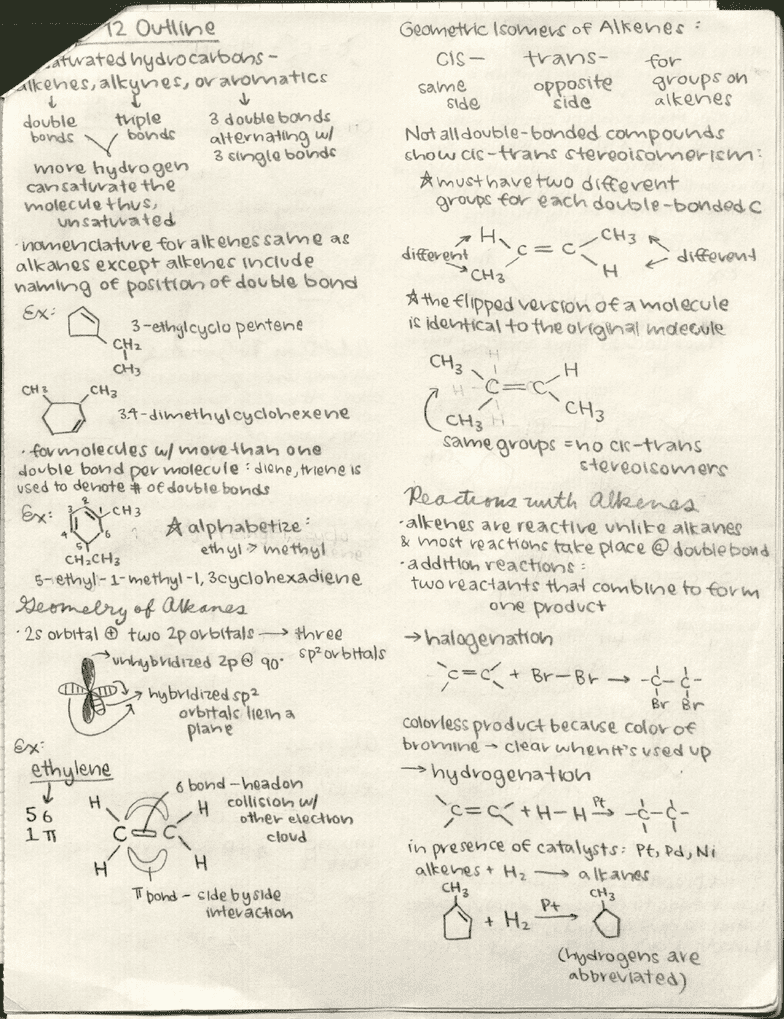 12 Outline
aturated hydrocarbons -
alkenes, alkynes, or aromatics
↓ ↓ ↓
double bonds
triple bonds
3 double bonds
alternating w/
3 single bonds
more hydrogen
can saturate the
molecule thus,
unsaturated
· nomenclature for alkenes same as
alkanes except alkenes include
naming of position of double bond
Ex:
3-ethylcyclo pentene
CH2
CH3
CH3 CH3
3.4-dimethylcyclohexene
· for molecules w/ more than one
double bond per molecule : diene, triene is
used to denote # of double bonds
Ex:
2
3 CH3
4 6
5
CH2CH3
☆ alphabetize :
ethyl > methyl
5-ethyl-1-methyl-1,3cyclohexadiene
Geometry of Alkanes
· 2s orbital ⊕ two 2p orbitals → three
sp² orbitals
→ unhybridized 2p @ 90°
→ hybridized sp²
orbitals lie in a
plane
Ex:
ethylene
↓
5 б
1 π
H H
C = C
H H
б bond - head on
collision w/
other electron
cloud
π bond - side by side
interaction
Geometric Isomers of Alkenes :
cis- trans- for
same side
opposite side
groups on
alkenes
Not all double-bonded compounds
show cis-trans stereoisomerism:
☆ must have two different
groups for each double-bonded C
different H CH3 different
C = C
CH3 H
☆ the flipped version of a molecule
is identical to the original molecule
CH3 H H
H - C = C
CH3 H CH3
same groups = no cis-trans
stereoisomers
Reactions with Alkenes
· alkenes are reactive unlike alkanes
& most reactions take place @ double bond
· addition reactions :
two reactants that combine to form
one product
→ halogenation
C=C + Br-Br → -C-C-
Br Br
colorless product because color of
bromine → clear when it's used up
→ hydrogenation
Pt
C=C + H-H → -C-C-
in presence of catalysts: Pt, Pd, Ni
alkenes + H2 → alkanes
CH3 CH3
+ H2 Pt →
(hydrogens are
abbreviated)